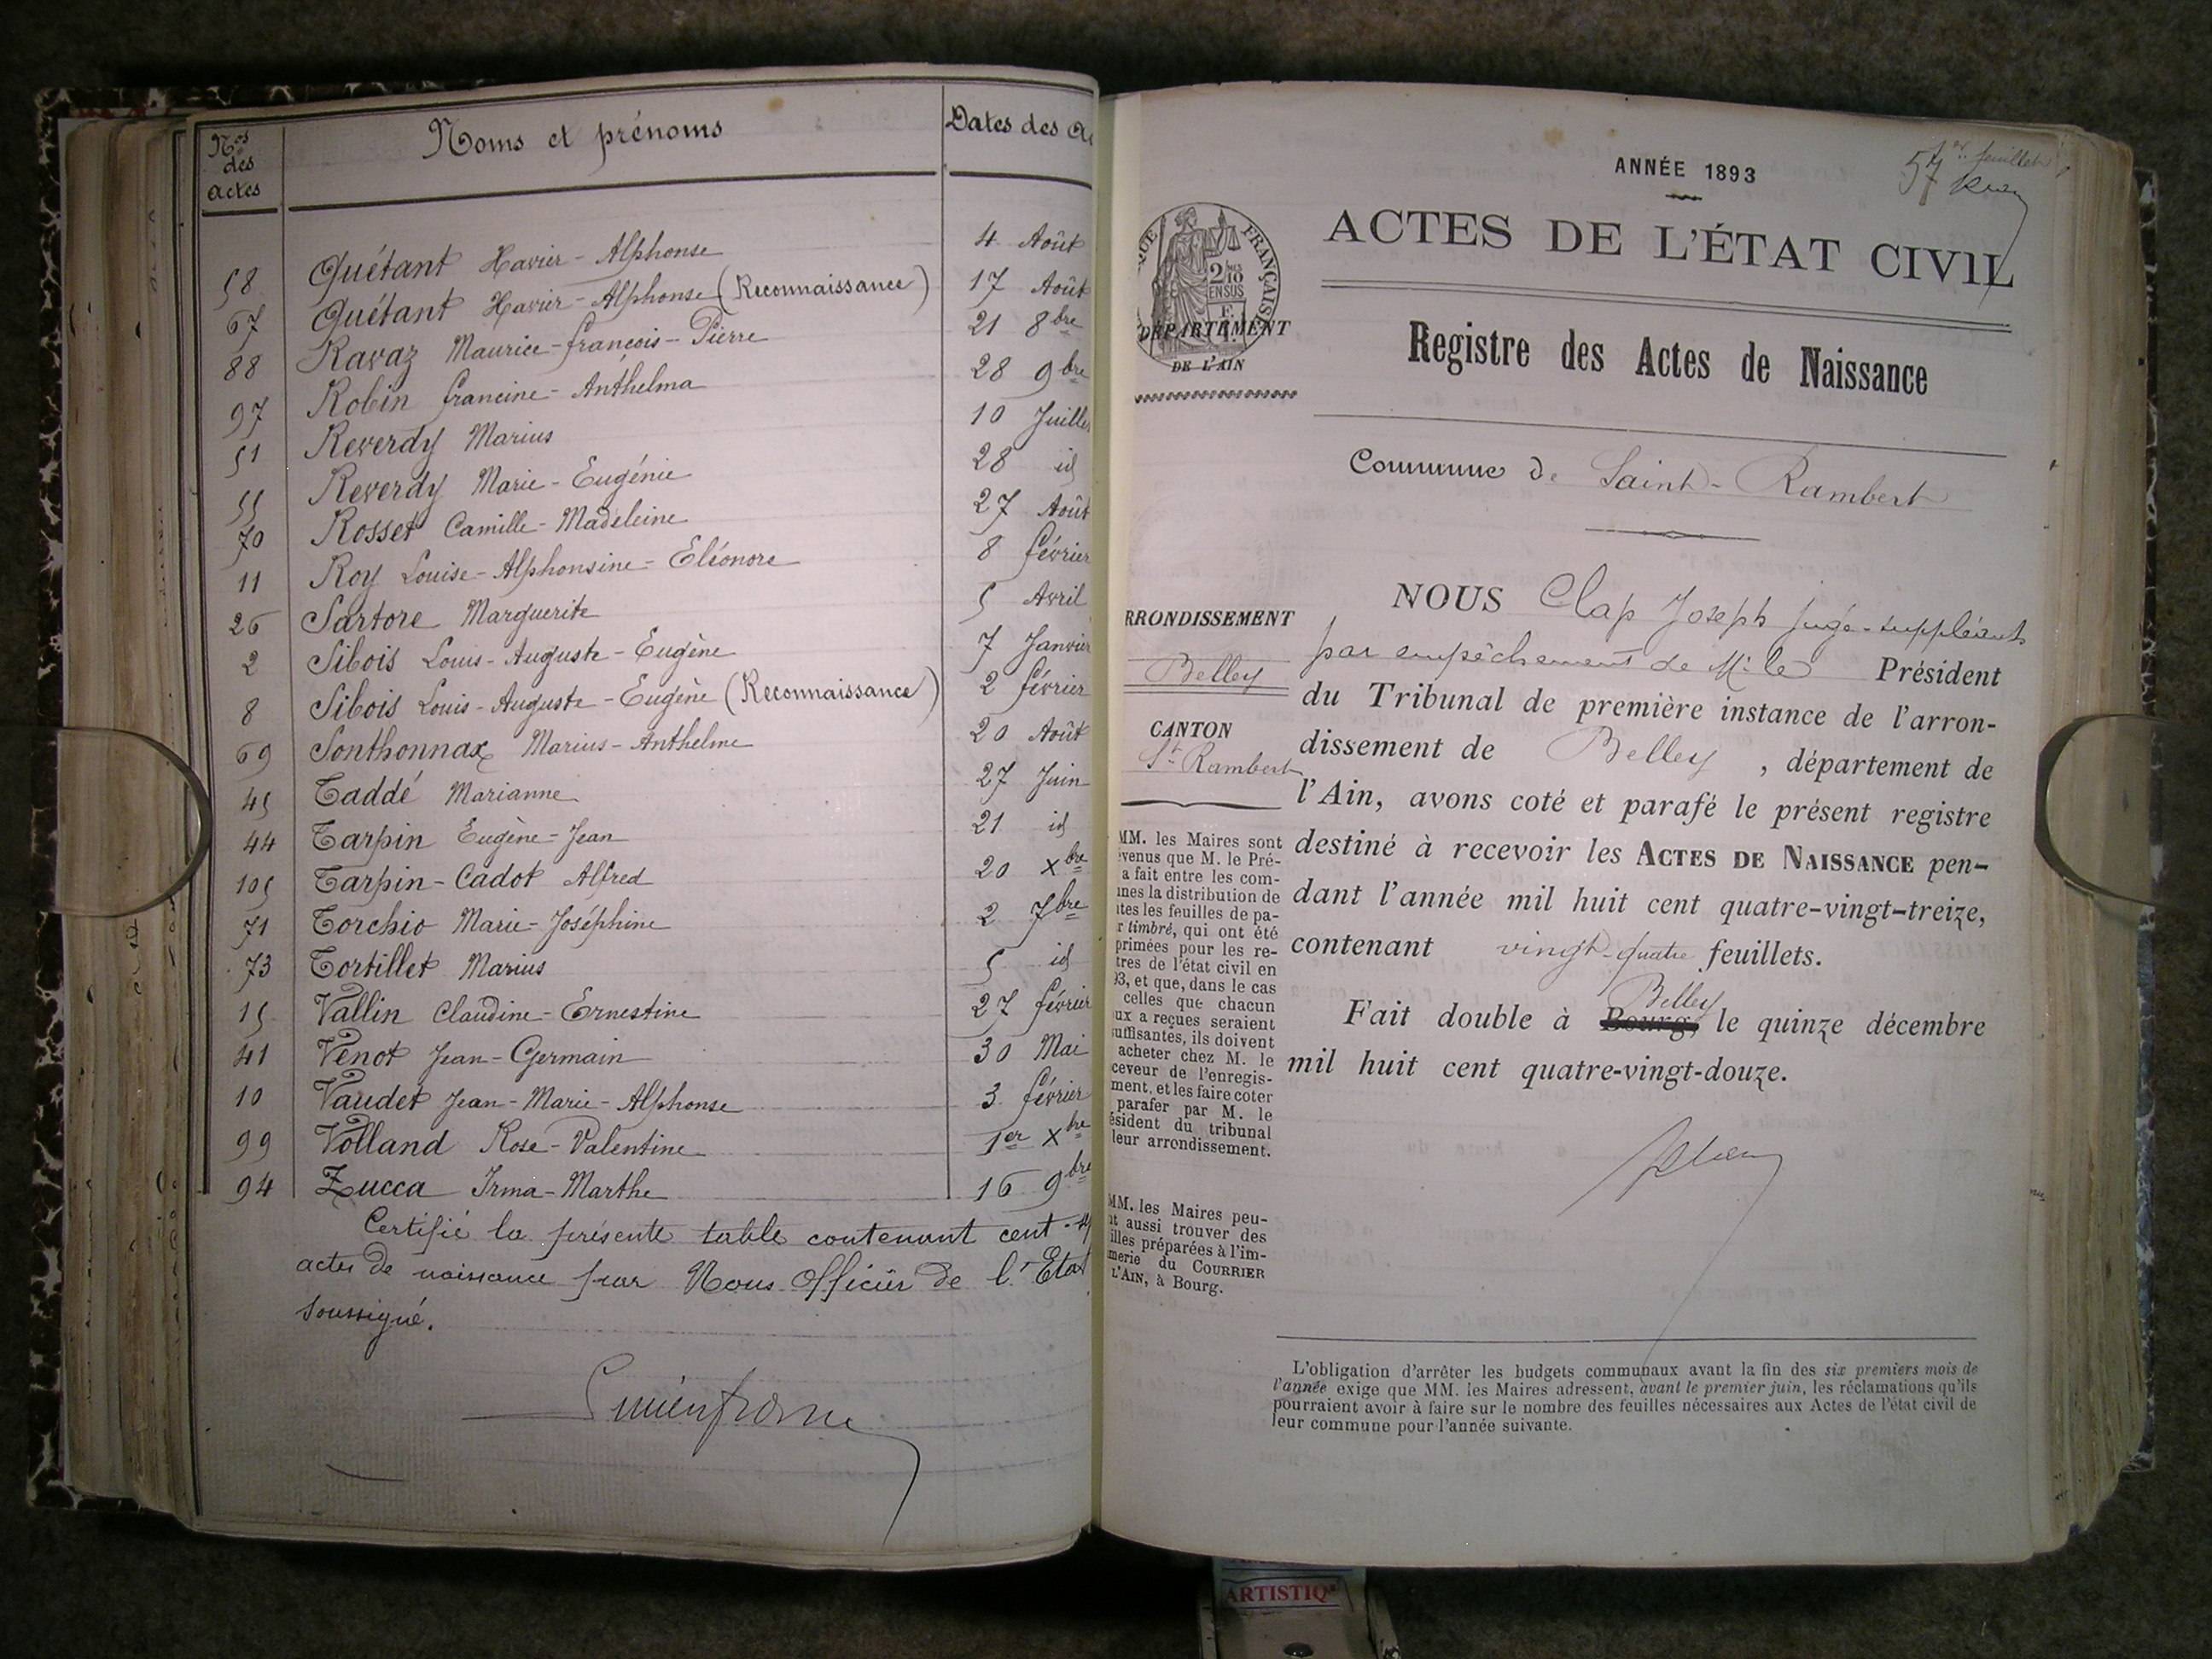 Nos des actes
Noms et prénoms
Dates des Ac
58 Quétant Xavier-Alphonse 4 Août
67 Quétant Xavier-Alphonse (Reconnaissance) 17 Août
88 Ravaz Maurice-françois-Pierre 21 8bre
97 Robin francine-Anthelma 28 9bre
51 Reverdy Marius 10 Juille
55 Reverdy Marie-Eugénie 28 id
70 Rosset Camille-Madeleine 27 Août
11 Roy Louise-Alphonsine-Eléonore 8 février
26 Sartore Marguerite 5 Avril
2 Sibois Louis-Auguste-Eugène 7 Janvier
8 Sibois Louis-Auguste-Eugène (Reconnaissance) 2 février
69 Sonthonnax Marius-Anthelme 20 Août
45 Taddé Marianne 27 Juin
44 Tarpin Eugène-Jean 21 id
105 Tarpin-Cadot Alfred 20 Xbre
71 Torchio Marie-Joséphine 2 7bre
73 Tortillet Marius 5 id
15 Vallin Claudine-Ernestine 27 février
41 Venot Jean-Germain 30 Mai
10 Vaudet Jean-Marie-Alphonse 3 février
99 Volland Rose-Valentine 1er Xbre
94 Zucca Irma-Marthe 16 9bre
Certifié la présente table contenant cent
actes de naissance par Nous Officier de l'Etat
soussigné.
57 feuillet
ANNÉE 1893
ACTES DE L'ÉTAT CIVIL
Registre des Actes de Naissance
QUE FRANÇAISE
2/10 EN SUS
DÉPARTEMENT
DE L'AIN
Commune de Saint-Rambert
RRONDISSEMENT
Belley
CANTON
St Rambert
NOUS Clap Joseph juge-suppléant
par empêchement de Mr le Président
du Tribunal de première instance de l'arron-
dissement de Belley, département de
l'Ain, avons coté et parafé le présent registre
destiné à recevoir les ACTES DE NAISSANCE pen-
dant l'année mil huit cent quatre-vingt-treize,
contenant vingt-quatre feuillets.
Belley
Fait double à Bourg, le quinze décembre
mil huit cent quatre-vingt-douze.
MM. les Maires sont
évenus que M. le Pré-
a fait entre les com-
nes la distribution de
tes les feuilles de pa-
r timbré, qui ont été
primées pour les re-
tres de l'état civil en
93, et que, dans le cas
celles que chacun
ux a reçues seraient
uffisantes, ils doivent
acheter chez M. le
ceveur de l'enregis-
ment, et les faire coter
parafer par M. le
ésident du tribunal
leur arrondissement.
MM. les Maires peu-
nt aussi trouver des
illes préparées à l'im-
merie du COURRIER
L'AIN, à Bourg.
L'obligation d'arrêter les budgets communaux avant la fin des six premiers mois de
l'année exige que MM. les Maires adressent, avant le premier juin, les réclamations qu'ils
pourraient avoir à faire sur le nombre des feuilles nécessaires aux Actes de l'état civil de
leur commune pour l'année suivante.
ARTISTIQ